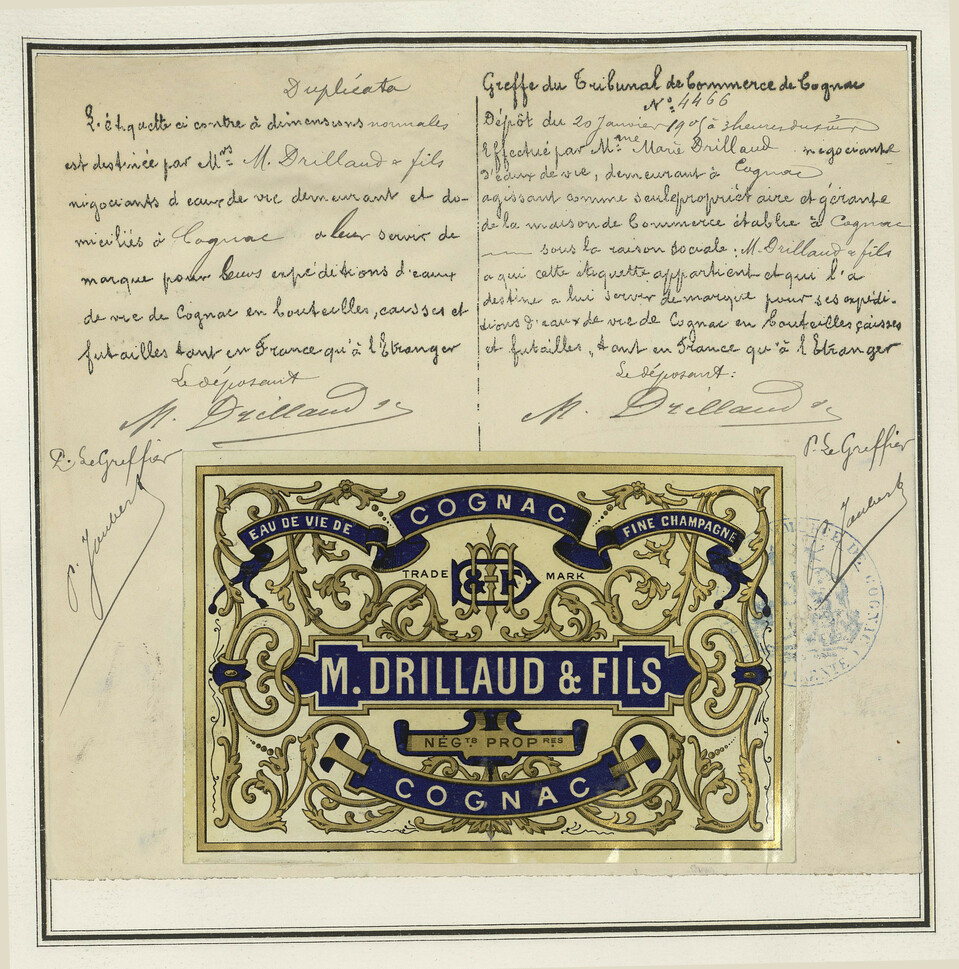 Duplicata
L'étiquette ci contre à dimensions normales
est destinée par Mrs M. Drillaud & fils
négociants d'eaux de vie demeurant et do-
miciliés à Cognac a leur servir de
marque pour leurs expéditions d'eaux
de vie de Cognac en bouteilles, caisses et
futailles tant en France qu'à l'Etranger
Le déposant
M. Drillaud
P. Le Greffier
P. Jaubert
Greffe du Tribunal de Commerce de Cognac
No: 4466
Dépôt du 20 Janvier à 3 heures du soir
Effectué par Mme Marie Drillaud négociante
d'eaux de vie, demeurant à Cognac
agissant comme seule propriétaire et gérante
de la maison de Commerce établie à Cognac
sous la raison sociale: M. Drillaud & fils
a qui cette étiquette appartient et qui l'a
destine a lui servir de marque pour ses expédi-
tions d'eaux de vie de Cognac en bouteilles caisses
et futailles, tant en France qu'à l'Etranger
Le déposant:
M. Drillaud
P. Le Greffier
Jaubert
EAU DE VIE DE
COGNAC
FINE CHAMPAGNE
TRADE MARK
M. DRILLAUD & FILS
NÉGTS PROPRES
COGNAC